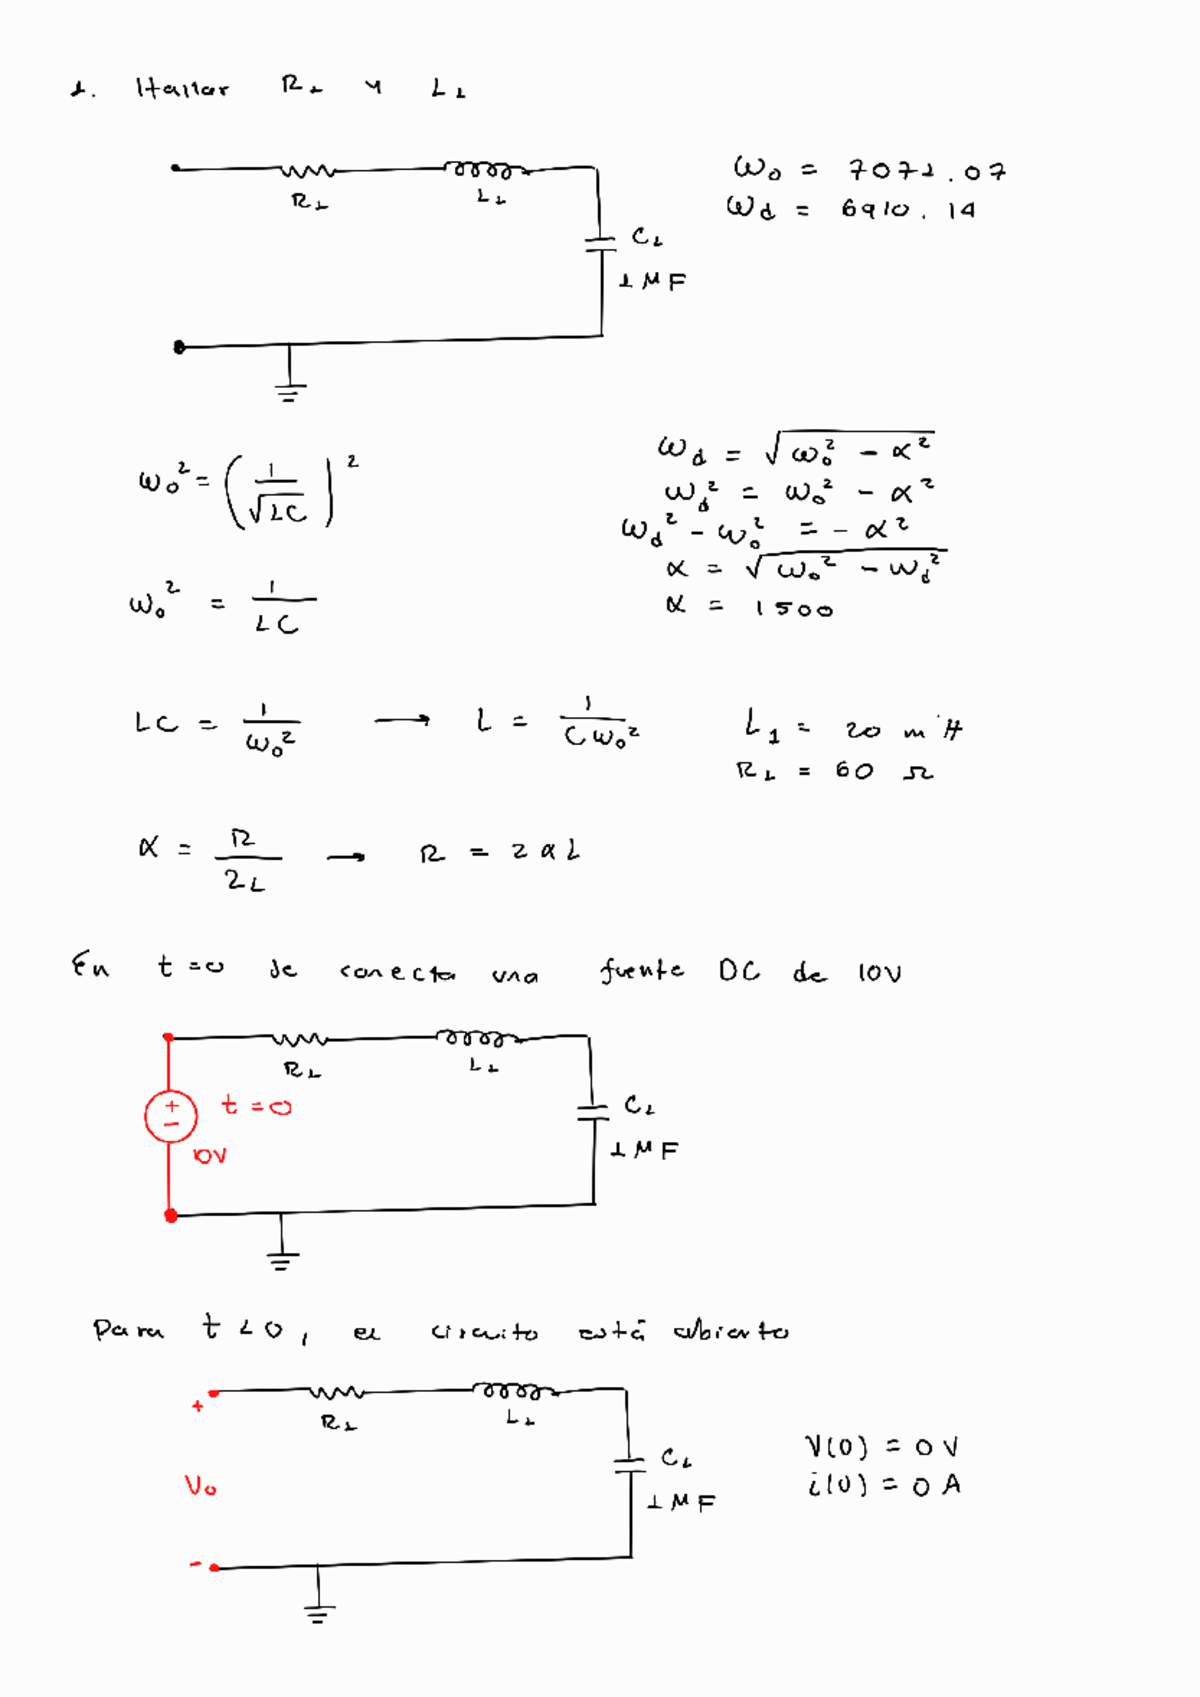 1. Hallar R1 y L1
ω0 = 7071.07
ωd = 6910.14
R1
L1
C1
1 μF
ω0² = (1/√LC)²
ωd = √(ω0² - α²)
ωd² = ω0² - α²
ωd² - ω0² = - α²
α = √(ω0² - ωd²)
α = 1500
ω0² = 1/LC
LC = 1/ω0² → L = 1/Cω0²
L1 = 20 mH
R1 = 60 Ω
α = R/2L → R = 2αL
En t=0 se conecta una fuente DC de 10V
R1
L1
+
-
t=0
10V
C1
1 μF
Para t<0, el circuito está abierto
+
R1
L1
C1
1 μF
V0
-
V(0) = 0V
i(0) = 0 A